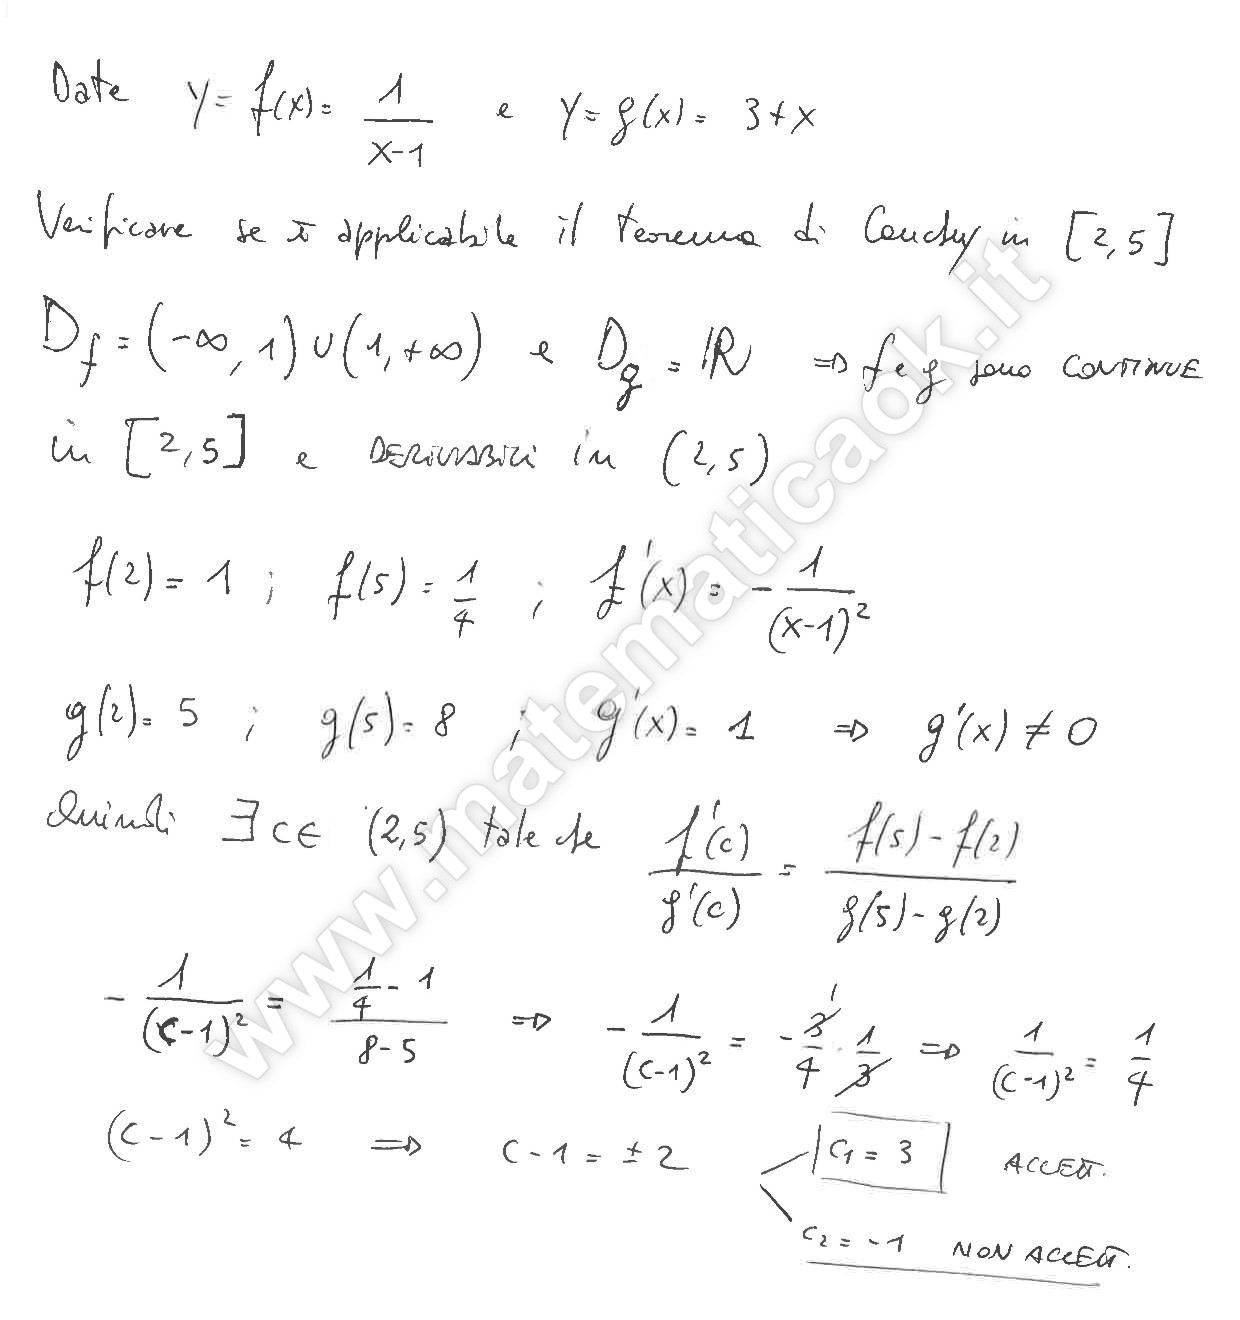 Date y = f(x) = 1/(x-1) e y = g(x) = 3+x
Verificare se è applicabile il teorema di Cauchy in [2,5]
D_f = (-∞, 1) ∪ (1, +∞) e D_g = ℝ ⇒ f e g sono CONTINUE
in [2,5] e DERIVABILI in (2,5)
f(2) = 1 ; f(5) = 1/4 ; f'(x) = - 1/(x-1)²
g(2) = 5 ; g(5) = 8 ; g'(x) = 1 ⇒ g'(x) ≠ 0
Quindi ∃ c ∈ (2,5) tale che f'(c)/g'(c) = (f(5) - f(2))/(g(5) - g(2))
- 1/(c-1)² = (1/4 - 1)/(8-5) ⇒ - 1/(c-1)² = - 3/4 · 1/3 ⇒ 1/(c-1)² = 1/4
(c-1)² = 4 ⇒ c-1 = ±2 c₁ = 3 ACCETT.
c₂ = -1 NON ACCETT.
www.matematicaok.it